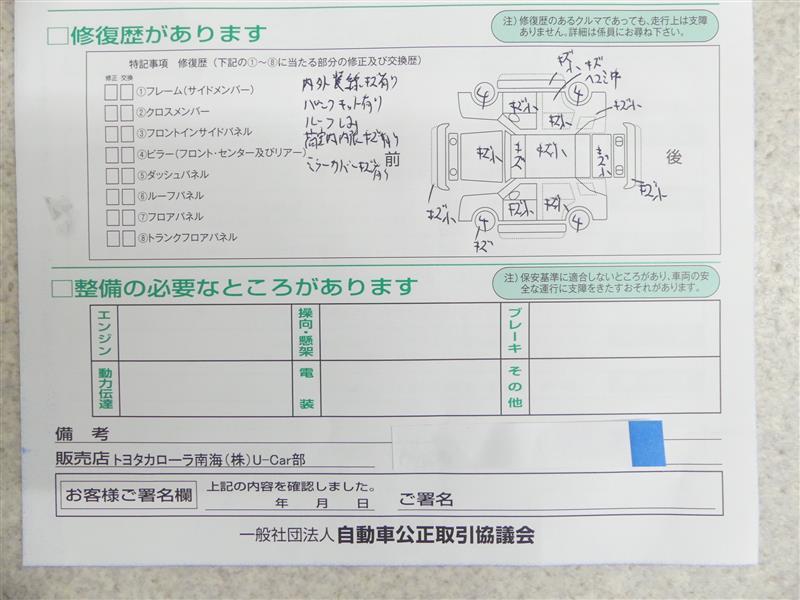 □修復歴があります
注）修復歴のあるクルマであっても、走行上は支障
ありません。詳細は係員にお尋ね下さい。
特記事項 修復歴（下記の①～⑧に当たる部分の修正及び交換歴）
修正 交換
①フレーム（サイドメンバー）
②クロスメンバー
③フロントインサイドパネル
④ピラー（フロント・センター及びリアー）
⑤ダッシュパネル
⑥ルーフパネル
⑦フロアパネル
⑧トランクフロアパネル
内外装線キズ有り
パンクキット有り
ルーフしみ
荷室内内張キズ有り
ミラーカバーキズ有り
前
後
キズ小
キズ
ヘコミ中
4
4
キズ小
キズ小
キズ小
キズ小
キズ
キズ小
キズ小
キズ小
キズ小
キズ小
キズ小
4
4
キズ
□整備の必要なところがあります
注）保安基準に適合しないところがあり、車両の安
全な運行に支障をきたすおそれがあります。
エンジン
操向・懸架
ブレーキ
動力伝達
電装
その他
備考
販売店 トヨタカローラ南海（株）U-Car部
お客様ご署名欄
上記の内容を確認しました。
年 月 日
ご署名
一般社団法人 自動車公正取引協議会